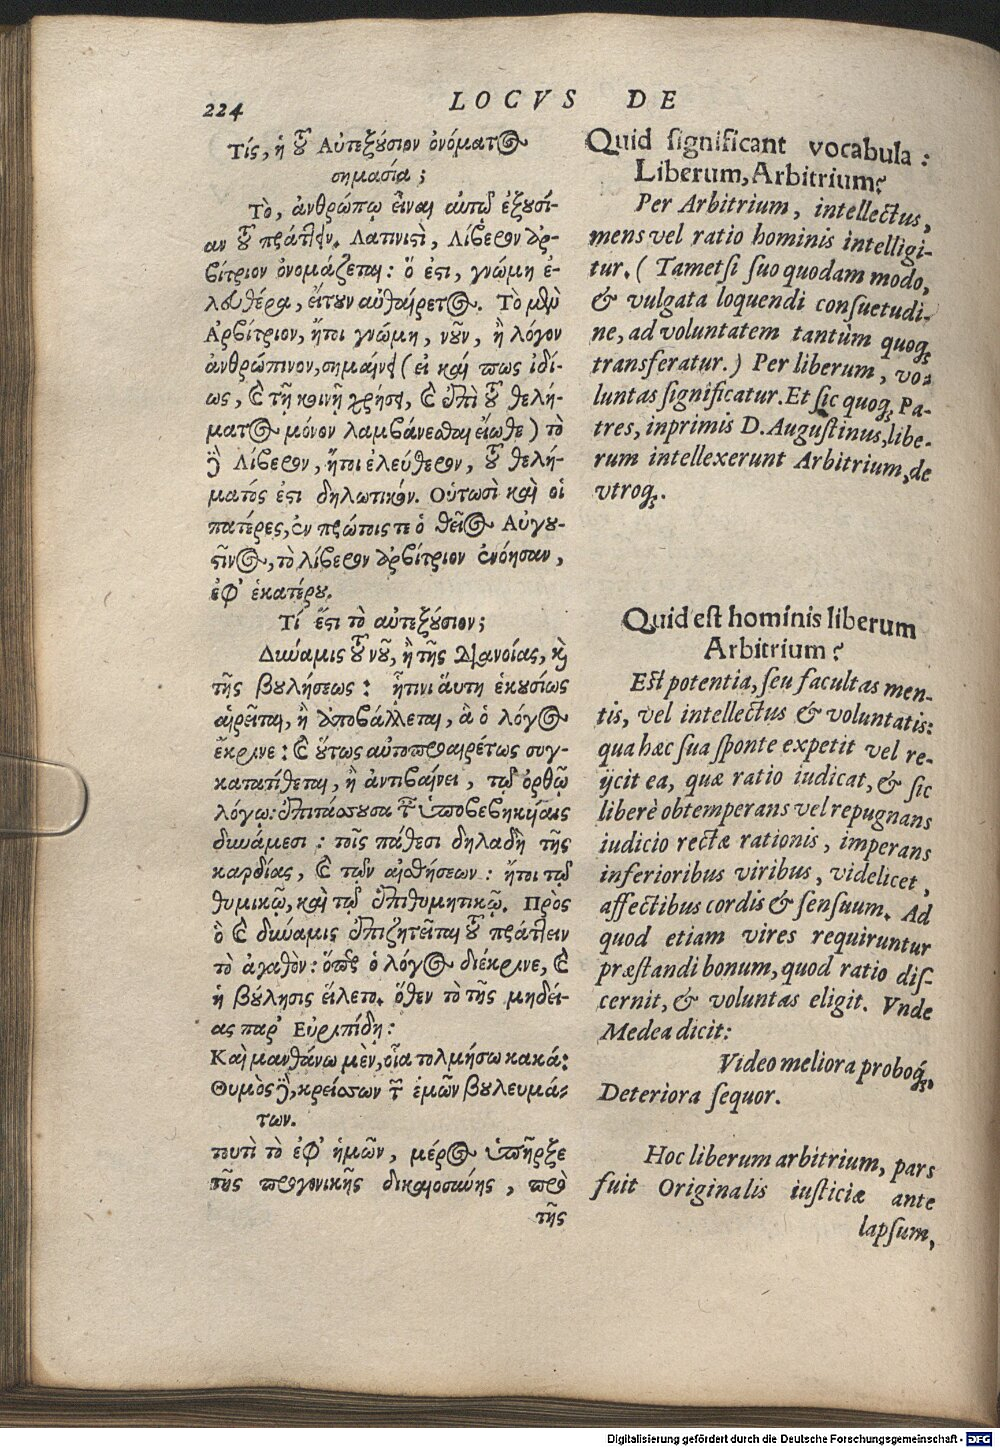 224
LOCVS DE
Τίς, ἡ τοῦ Αὐτεξούσιον ὀνόματος
σημασία;
Τὸ, ἀνθρώπῳ εἶναι αὐτῷ ἐξουσί-
αν τοῦ πράττειν. Λατινιστὶ, Λίβερον ἀρ-
βίτριον ὀνομάζεται: ὅ ἐστι, γνώμη ἐ-
λευθέρα, εἴτουν αὐθαίρετος. Τὸ μὲν
Αρβίτριον, ἤτοι γνώμη, νοῦν, ἢ λόγον
ἀνθρώπινον, σημαίνει (εἰ καί πως ἰδί-
ως, καὶ τῇ κοινῇ χρήσει, καὶ ἐπὶ τοῦ θελή-
ματος μόνον λαμβάνεσθαι εἴωθε) τὸ
δὲ Λίβερον, ἤτοι ἐλεύθερον, τοῦ θελή-
ματός ἐστι δηλωτικόν. Οὑτωσὶ καὶ οἱ
πατέρες, ἐν πρώτοις τε ὁ θεῖος Αὐγου-
στῖνος, τὸ λίβερον ἀρβίτριον ἐνόησαν,
ἐφ' ἑκατέρου.
Τί ἔστι τὸ αὐτεξούσιον;
Δύναμις τοῦ νοῦ, ἢ τῆς διανοίας, καὶ
τῆς βουλήσεως: ᾗτινι αὕτη ἑκουσίως
αἱρεῖται, ἢ ἀποβάλλεται, ἃ ὁ λόγος
ἔκρινε: καὶ οὕτως αὐτοπροαιρέτως συγ-
κατατίθεται, ἢ ἀντιβαίνει, τῷ ὀρθῷ
λόγῳ: ἐπιτάσσουσα ταῖς ὑποβεβηκυίαις
δυνάμεσι: τοῖς πάθεσι δηλαδὴ τῆς
καρδίας, καὶ τῶν αἰσθήσεων: ἤτοι τῷ
θυμικῷ, καὶ τῷ ἐπιθυμητικῷ. Πρὸς
ὃ καὶ δύναμις ἐπιζητεῖται τοῦ πράττειν
τὸ ἀγαθὸν: ὅπερ ὁ λόγος διέκρινε, καὶ
ἡ βούλησις εἵλετο. ὅθεν τὸ τῆς μηδεί-
ας παρ' Εὐριπίδῃ:
Καὶ μανθάνω μὲν, οἷα τολμήσω κακά:
Θυμὸς δὲ, κρείσσων τῶν ἐμῶν βουλευμά-
των.
τουτὶ τὸ ἐφ' ἡμῶν, μέρος ὑπῆρξε
τῆς προγονικῆς δικαιοσύνης, πρὸ
τῆς
Quid significant vocabula:
Liberum, Arbitrium?
Per Arbitrium, intellectus,
mens vel ratio hominis intelligi-
tur. (Tametsi suo quodam modo,
& vulgata loquendi consuetudi-
ne, ad voluntatem tantùm quoq;
transferatur.) Per liberum, vo-
luntas significatur. Et sic quoq; Pa-
tres, inprimis D. Augustinus, libe-
rum intellexerunt Arbitrium, de
vtroq;.
Quid est hominis liberum
Arbitrium?
Est potentia, seu facultas men-
tis, vel intellectus & voluntatis:
qua hæc sua sponte expetit vel re-
ijcit ea, quæ ratio iudicat, & sic
liberè obtemperans vel repugnans
iudicio rectæ rationis, imperans
inferioribus viribus, videlicet,
affectibus cordis & sensuum. Ad
quod etiam vires requiruntur
præstandi bonum, quod ratio dis-
cernit, & voluntas eligit. Vnde
Medea dicit:
Video meliora proboq́;,
Deteriora sequor.
Hoc liberum arbitrium, pars
fuit Originalis iusticiæ ante
lapsum,
Digitalisierung gefördert durch die Deutsche Forschungsgemeinschaft - DFG